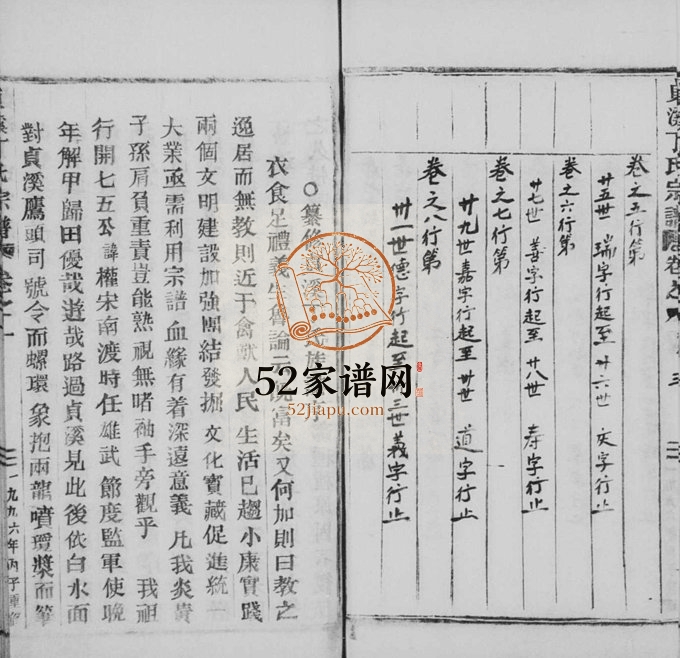 貞溪丁氏宗譜
卷之五行第
廿五世 瑞字行起至 廿六世 字行止
卷之六行第
廿七世 善字行起至 廿八世 寿字行止
卷之七行第
廿九世嘉字行起至 卅世 道字行止
卷之八行第
卅一世德字行起至 三世義字行止
○纂修貞溪 氏族
衣食足禮義 論 富矣又何加則曰教之
逸居而無教則近于禽獸人民 生活已趨小康實踐
兩個文明建設加強團結發掘 文化寶藏促進統一
大業亟需利用宗譜 血緣有着深遠意義 凡我炎黃
子孫肩負重責豈能熟 視無啫 袖手旁觀乎 我祖
行開七五公 諱權宋南渡時任 雄武 節度監軍使晚
年解甲歸田優哉遊哉路過貞溪見此後依白水面
對貞溪鷹頭司號令而螺環 象抱兩龍噴瓊漿而筆
氏宗譜
一九九六年丙子重修
52家谱网
52jiapu.com